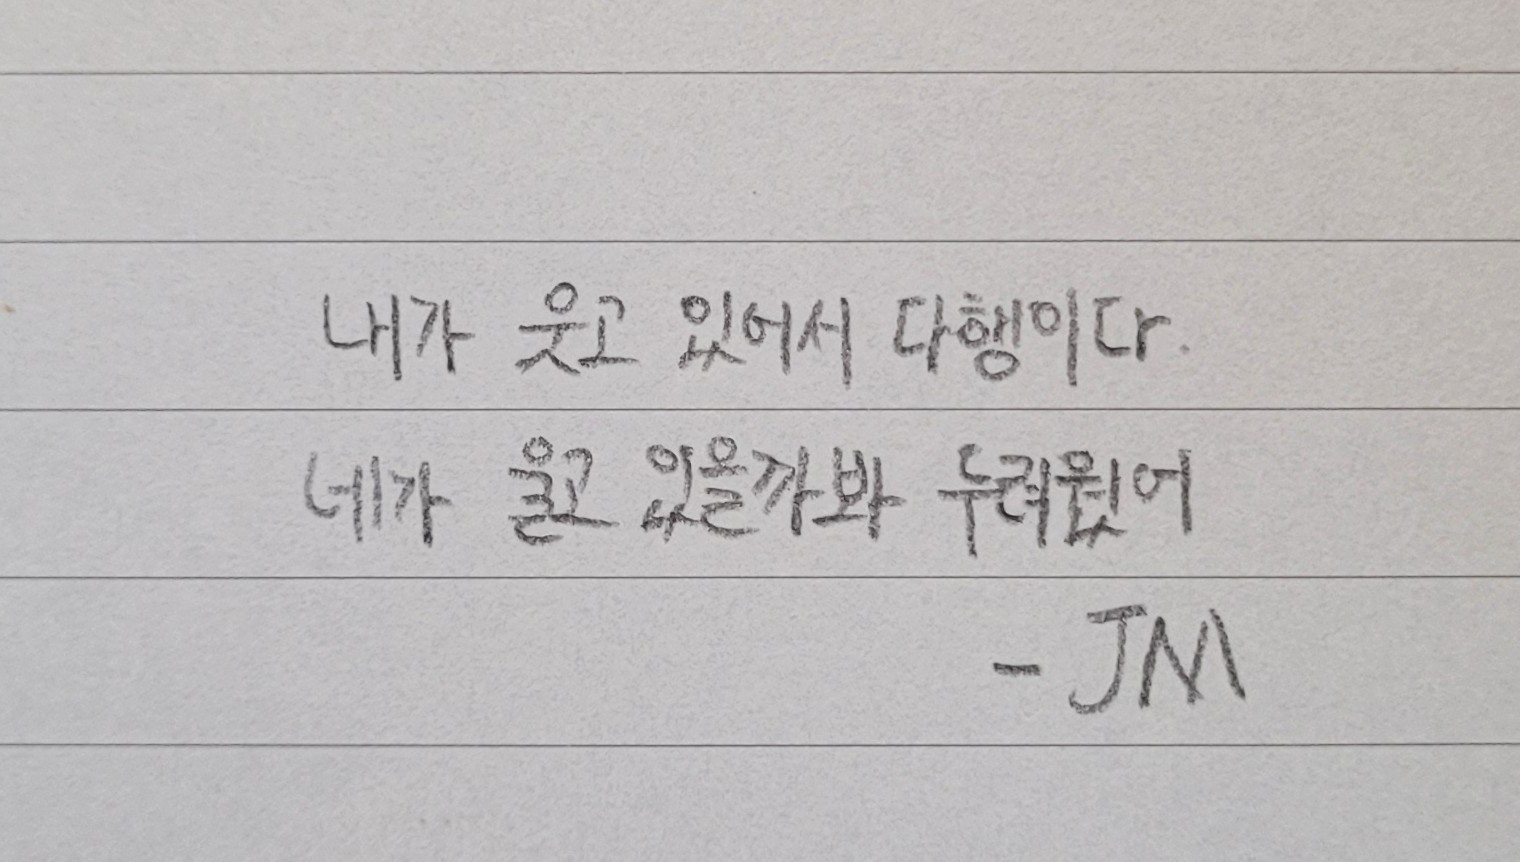 내가 웃고 있어서 다행이다.
네가 울고 있을까봐 두려웠어
- JM